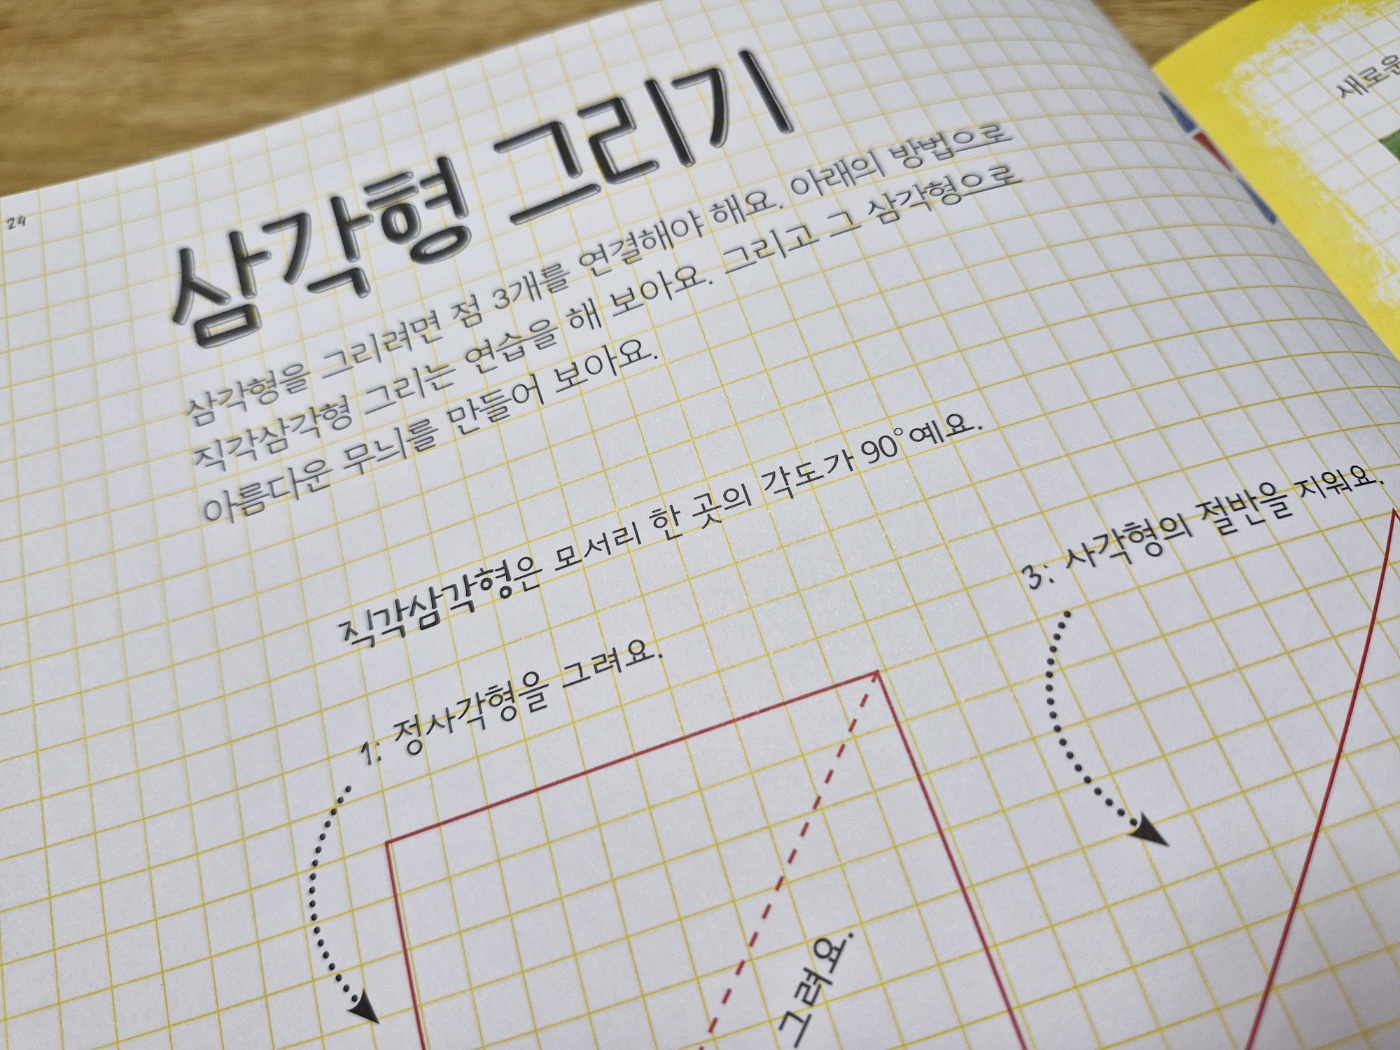 24
삼각형 그리기
삼각형을 그리려면 점 3개를 연결해야 해요. 아래의 방법으로
직각삼각형 그리는 연습을 해 보아요. 그리고 그 삼각형으로
아름다운 무늬를 만들어 보아요.
직각삼각형은 모서리 한 곳의 각도가 90°예요.
1: 정사각형을 그려요.
3: 사각형의 절반을 지워요.
그려요.
새로운